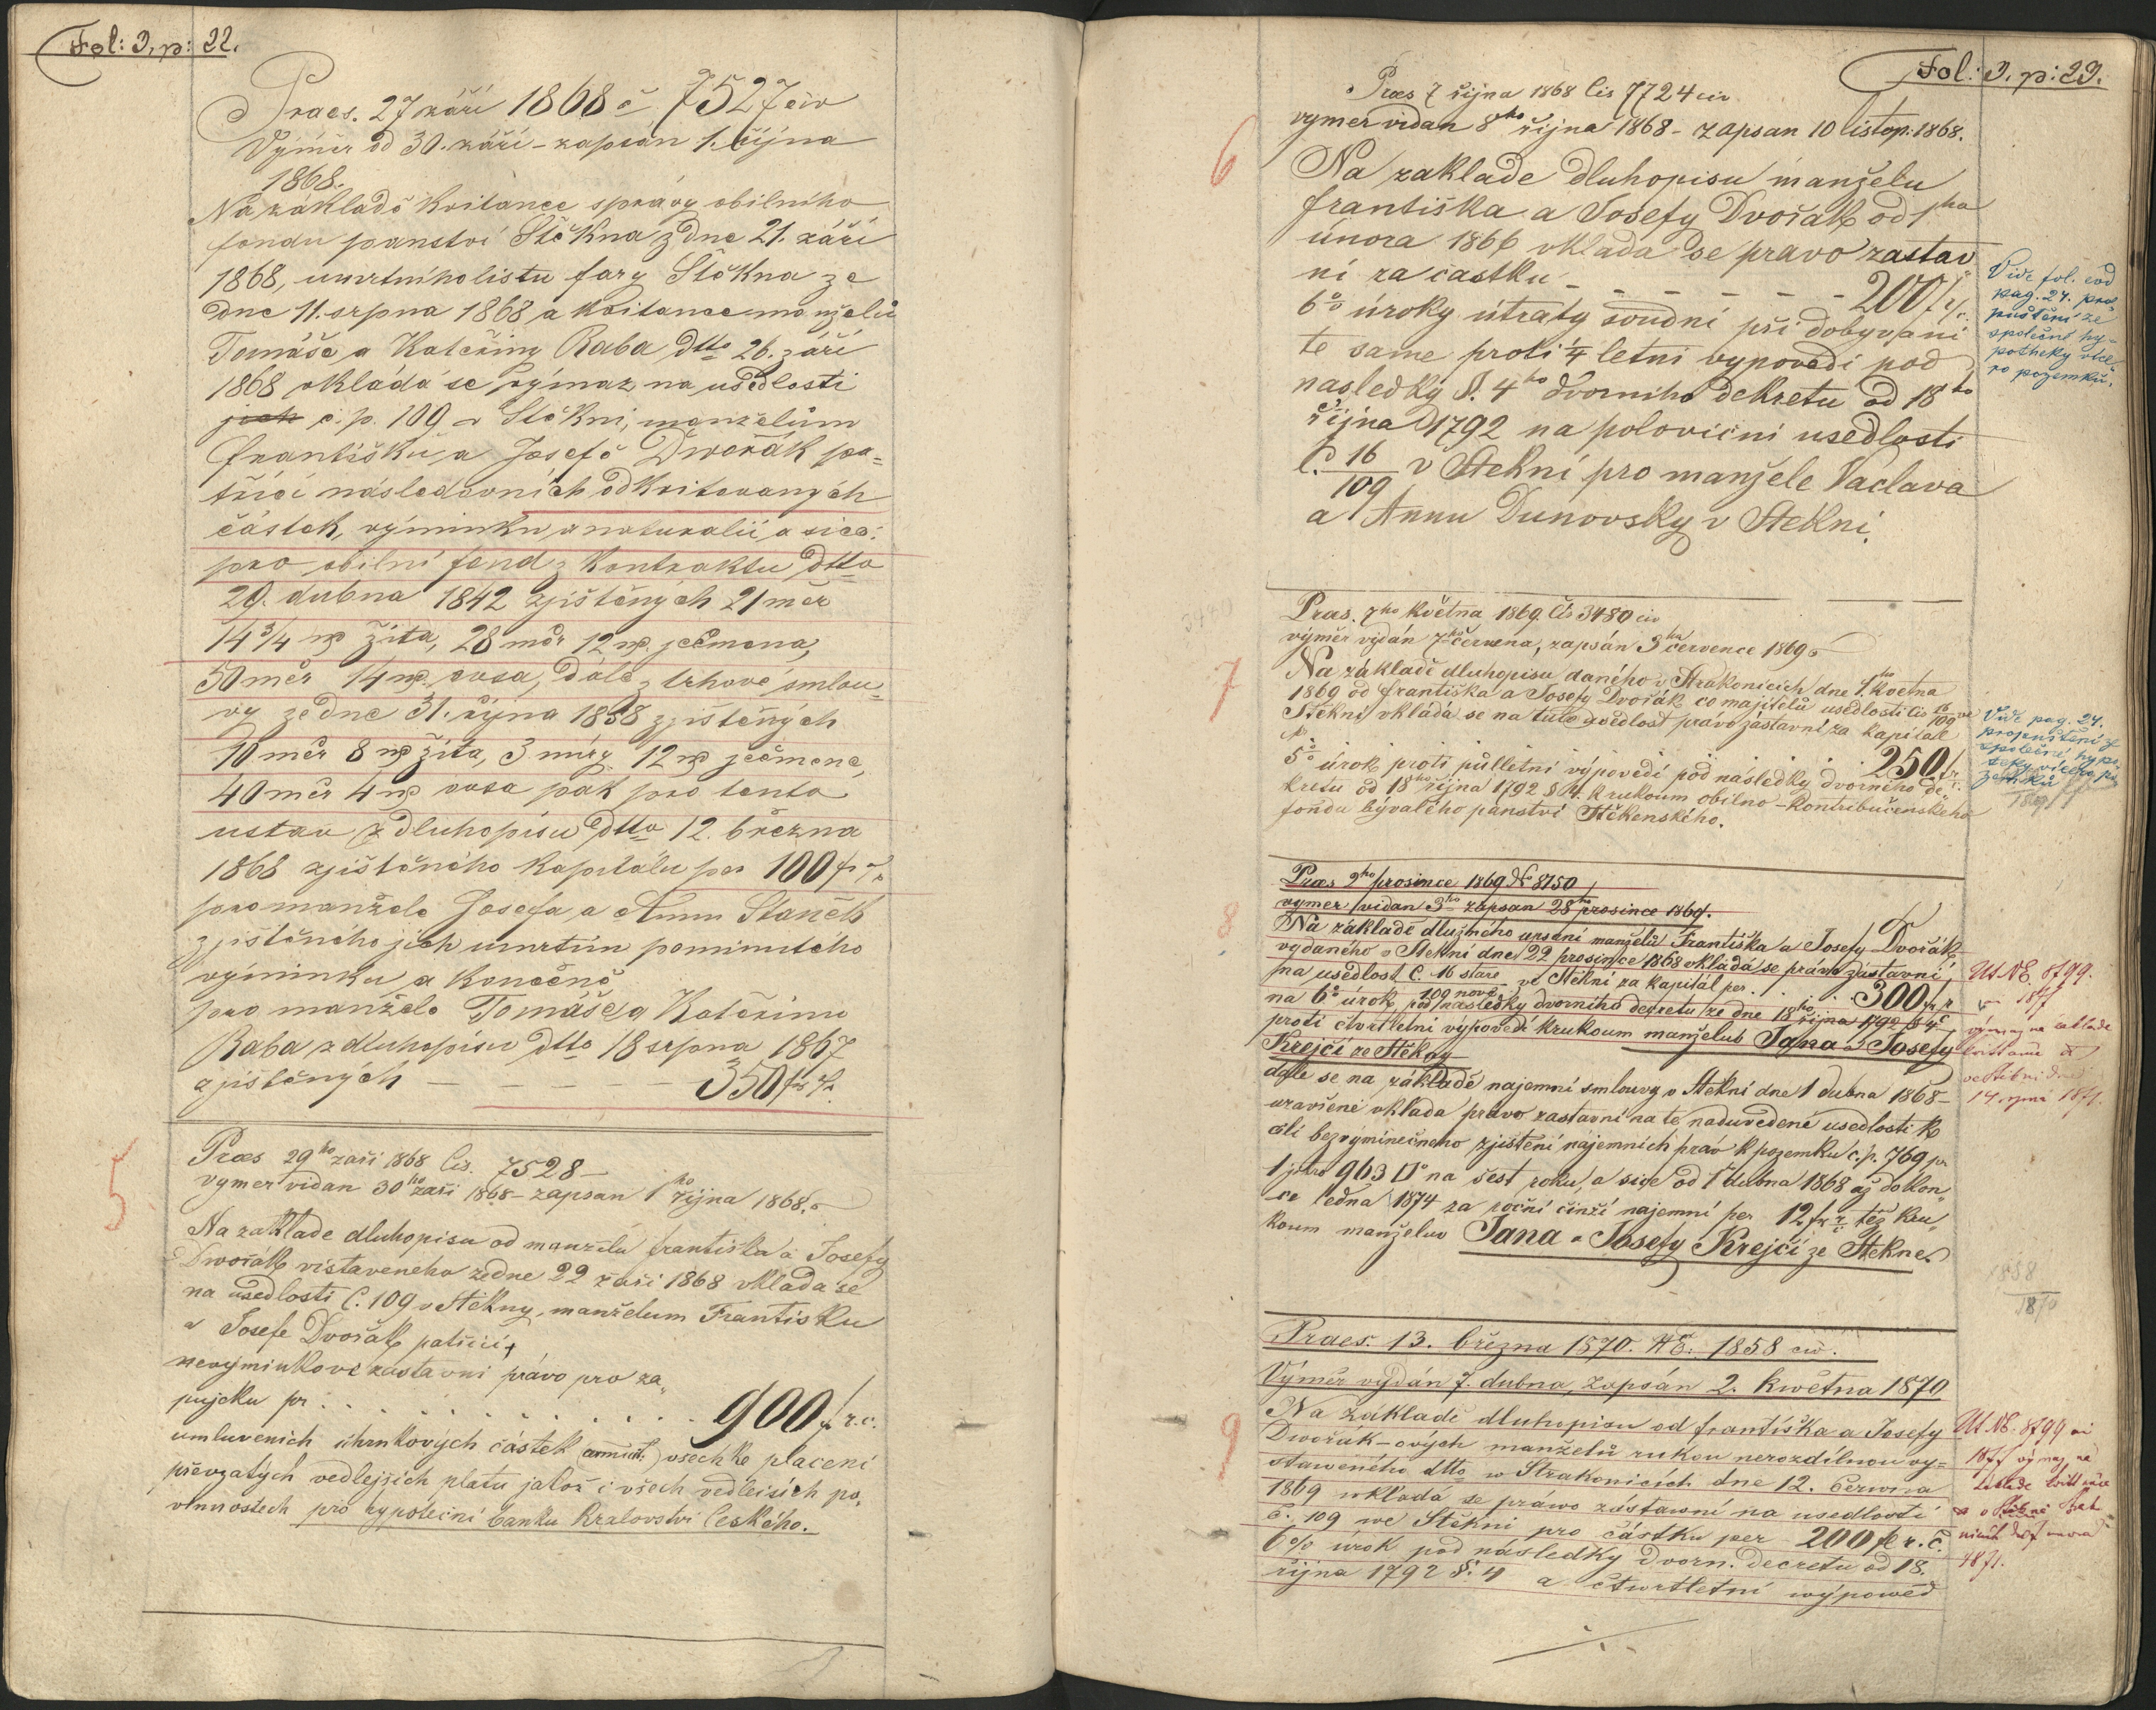 Fol: 3, p: 22.
Praes. 27 září 1868 č 7527 civ
Výměr od 30. září - zapsán 1. října
1868.
Na základě kvitance správy obilního
fondu panství Štěkna z dne 21. září
1868, umrtního listu fary Štěkna ze
dne 11. srpna 1868 a kvitance manželů
Tomáše a Kateřiny Raba dtto 26. září
1868 vkládá se výmaz na usedlosti
jich č. p. 109 v Štěkni, manželům
Františku a Josefě Dwořák pa=
třící následovních odkvitovaných
částek, výminku a naturalií, a sice:
pro obilní fond z kontraktu dtto
29. dubna 1842 zjištěných 21 měr
14 3/4 žita, 28 měr 12 ječmena,
50 měr 14 ovsa, dále z trhové smlou=
vy ze dne 31. října 1838 zjištěných
10 měr 8 žita, 3 míry 12 ječmene,
40 měr 4 ovsa pak pro tento
ustav z dluhopisu dtto 12. března
1868 zjištěného kapitálu per 100 fr
pro manžele Josefa a Annu Staněk
zjištěného jich umrtím pominutého
výminku a konečně
pro manžele Tomáše a Kateřinu
Raba z dluhopisu dtto 18 srpna 1867
zjištěných — — — — 350 fr
5
Præs 29ho zaři 1868 čis. 7528 —
vymer vidan 30ho zaři 1868 - zapsan 1ho řijna 1868.
Na zaklade dluhopisu od manzelu Františka a Josefy
Dwořák vistaveneho ze dne 22 zaři 1868 vklada se
na usedlosti č. 109 v Štěkny, manželum Františku
a Josefe Dvořak patřici,
nevýminkové zastavni právo pro za„
pujčku pr: . . . . . . . . 900 f r. c.
umluvenich uhrnkových částek (annuit.) všech ke placení
převzatých vedlejších platu jakož i všech vedlejsich po„
vinnostech pro hypoteční banku Kralovstvi českého.
Fol: 3. p: 23.
Præs 7 řijna 1868 čis 7724 civ
6
vymer vidan 8ho řijna 1868 - zapsan 10 listop: 1868.
Na zaklade dluhopisu manželu
Františka a Josefy Dvořák od 1ho
února 1866 vklada se pravo zastav
ní za častku - - - - - - 200 f
6% úroky útraty soudní při dobyvani
te same proti 1/4 letni vypovědi pod
nasledky §. 4ho dvorniho dekretu od 18ho
řijna 1792 na polovični usedlosti
č. 16/109 v Stekni pro manžele Vaclava
a Annu Dunovsky v Stekni.
Vide fol. eod
pag. 24. pro
puštění ze
společné hy-
potheky více
ro pozemků.
7
Præs. 7ho května 1869. čis 3480 civ
výměr vydán 7ho června, zapsán 3ho července 1869
Na základě dluhopisu daného v Strakonicích dne 1ho května
1869 od Františka a Josefy Dvořák co majitelů usedlosti čis 16/109 ve
Štěkni vkládá se na tuto usedlost právo zástavní za kapitál
. . . . . 250 fr
5% úrok proti půlletní výpovědi pod následky dvorního de„
kretu od 18ho října 1792 § 4. k rukoum obilno-kontribučenského
fondu bývalého panství Štěkenského.
Vide pag. 24.
propuštění z
společné hypo
teky vícero po
zemků
8
Præs 2ho prosince 1869 No 8150
vymer vidan 3ho zapsan 28ho prosince 1869.
Na základě dlužného upsaní manželů Františka a Josefy Dvořák
vydaného v Stekni dne 22 prosince 1868 vkládá se právo zástavní
na usedlost č. 16 staré 109 nové ve Stěkni za kapitál per . . . 300 fr
na 6% úrok pod následky dvorního decretu ze dne 18ho řijna 1792 § 4
proti čtvrtletní výpovědi k rukoum manželů Jana a Josefy
Krejčí ze Stěkny
dále se na základě najemní smlouvy v Stekni dne 1 dubna 1868
uzavřené vklada právo zastavni na te naduvedené usedlosti k
cíli bezvýminečneho zjištění najemních práv k pozemku č. p. 769 pr
1 jitro 963 □° na šest roku, a sice od 1 dubna 1868 až do kon„
ce ledna 1874 za roční činži najemní per 12 fr též k ru„
koum manželuv Jana a Josefy Krejčí ze Stěkne
Ut. NE. 8799.
1871
14 řijna 1871.
9
Praes. 13. března 1870. NE: 1858 civ.
Výměr vydán 7. dubna, zapsán 2. května 1870
Na základě dluhopisu od Františka a Josefy
Dwořák-ových manželů rukou nerozdílnou vy=
staweného dtto w Strakonicích dne 12. června
1869 wkládá se práwo zástawní na usedlosti
č. 109 we Stěkni pro částku per 200 fl r. č.
6% úrok pod následky dworn. decretu od 18.
října 1792 §. 4 a čtwrtletní wýpowěd
Ut. NE. 8799
1871.